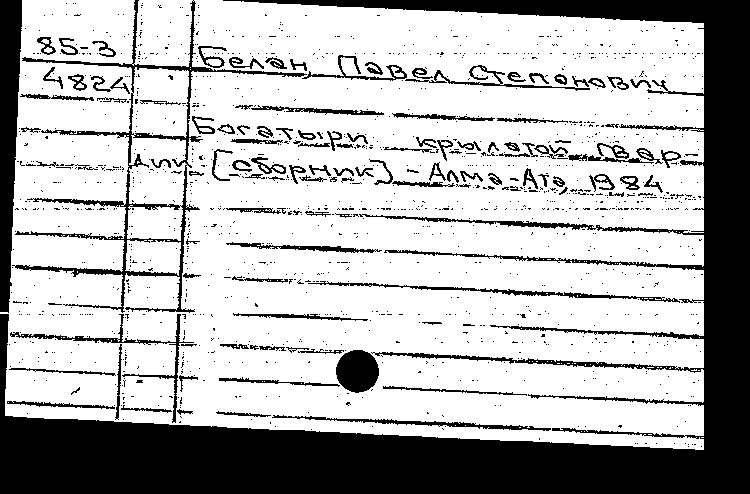 85-3
4824
Белан, Павел Степанович
Богатыри крылатой гвар-
дии: [сборник] - Алма-Ата, 1984